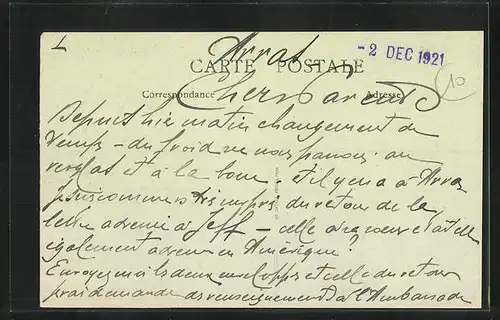 Arras -
- 2 DEC 1921
CARTE POSTALE
Correspondance Adresse
Chers Parents
10
Depuis hier matin changement de
temps - du froid ne nous passons au
verglas et à la boue - et il y en a à Arras
sommes très surpris du retour de la
lettre adressée à Jeff - celle à sa soeur était elle
également adressée en Amérique?
Envoyez mois deux enveloppes et celle du retour
demande des renseignements à l'Ambassade